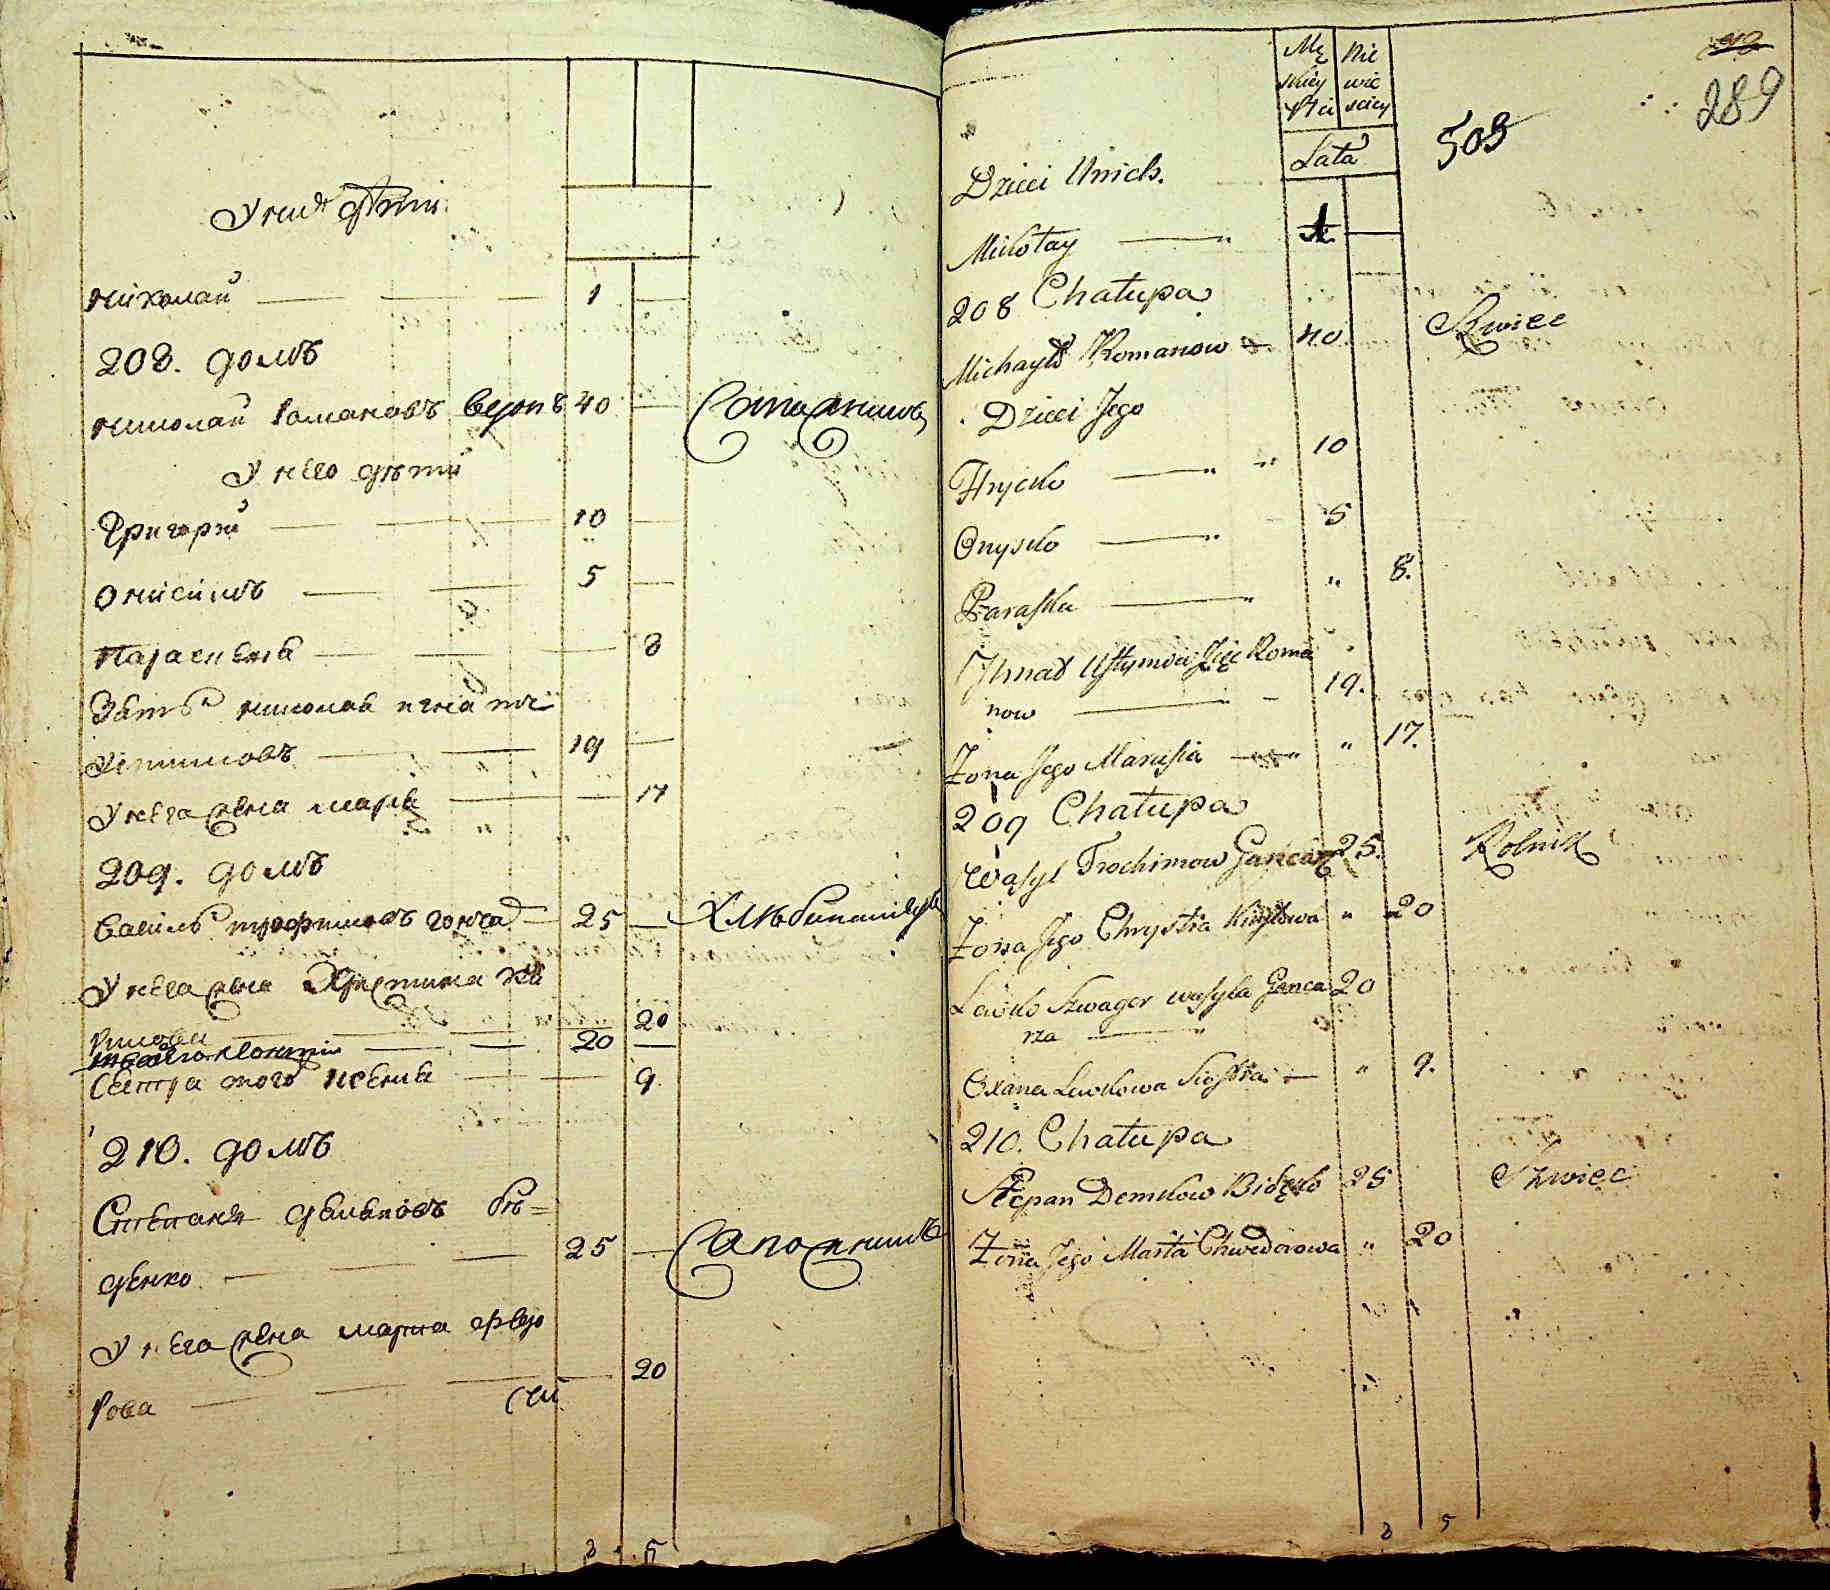 У них дѣти
Николай 1
208. домъ
Николай Романовъ 40 Сапожникъ
У него дѣти
Григорей 10
Онисимъ 5
8
Зять Николая Игнатей
Устимовъ 19
У него жена Марья 17
209. домъ
Василь Трофимовъ Гонча 25 Хлебопашецъ
У него жена Христина
20
20
Сестра того 9.
210. домъ
Степанъ Демьяновъ Бе=
денко 25 Сапожникъ
У него жена Марта Федо
рова 20
8 5
Mę Nie
skiey wie
płci sciey
Lata
503
289
Dzieci Unich.
Mikołay 1
208 Chałupa
Michayło Romanow 40. Szwiec
Dzieci Jego
Hrycko 10
Onysko 5
Paraska " 8.
Ihnat Ustymow Zięć Roma
now 19.
Zona Jego Marusia " 17.
209 Chałupa
Wasyl Trochimow Gancarz 25. Rolnik
Zona Jego Chrystia " 20
Lewko Szwager Wasyla Ganca 20
rza
Oxana Lewkowa Siostra " 9.
210. Chałupa
Stepan Demkow 25 Szwiec
Zona Jego Marta Chwedorowa " 20
8 5